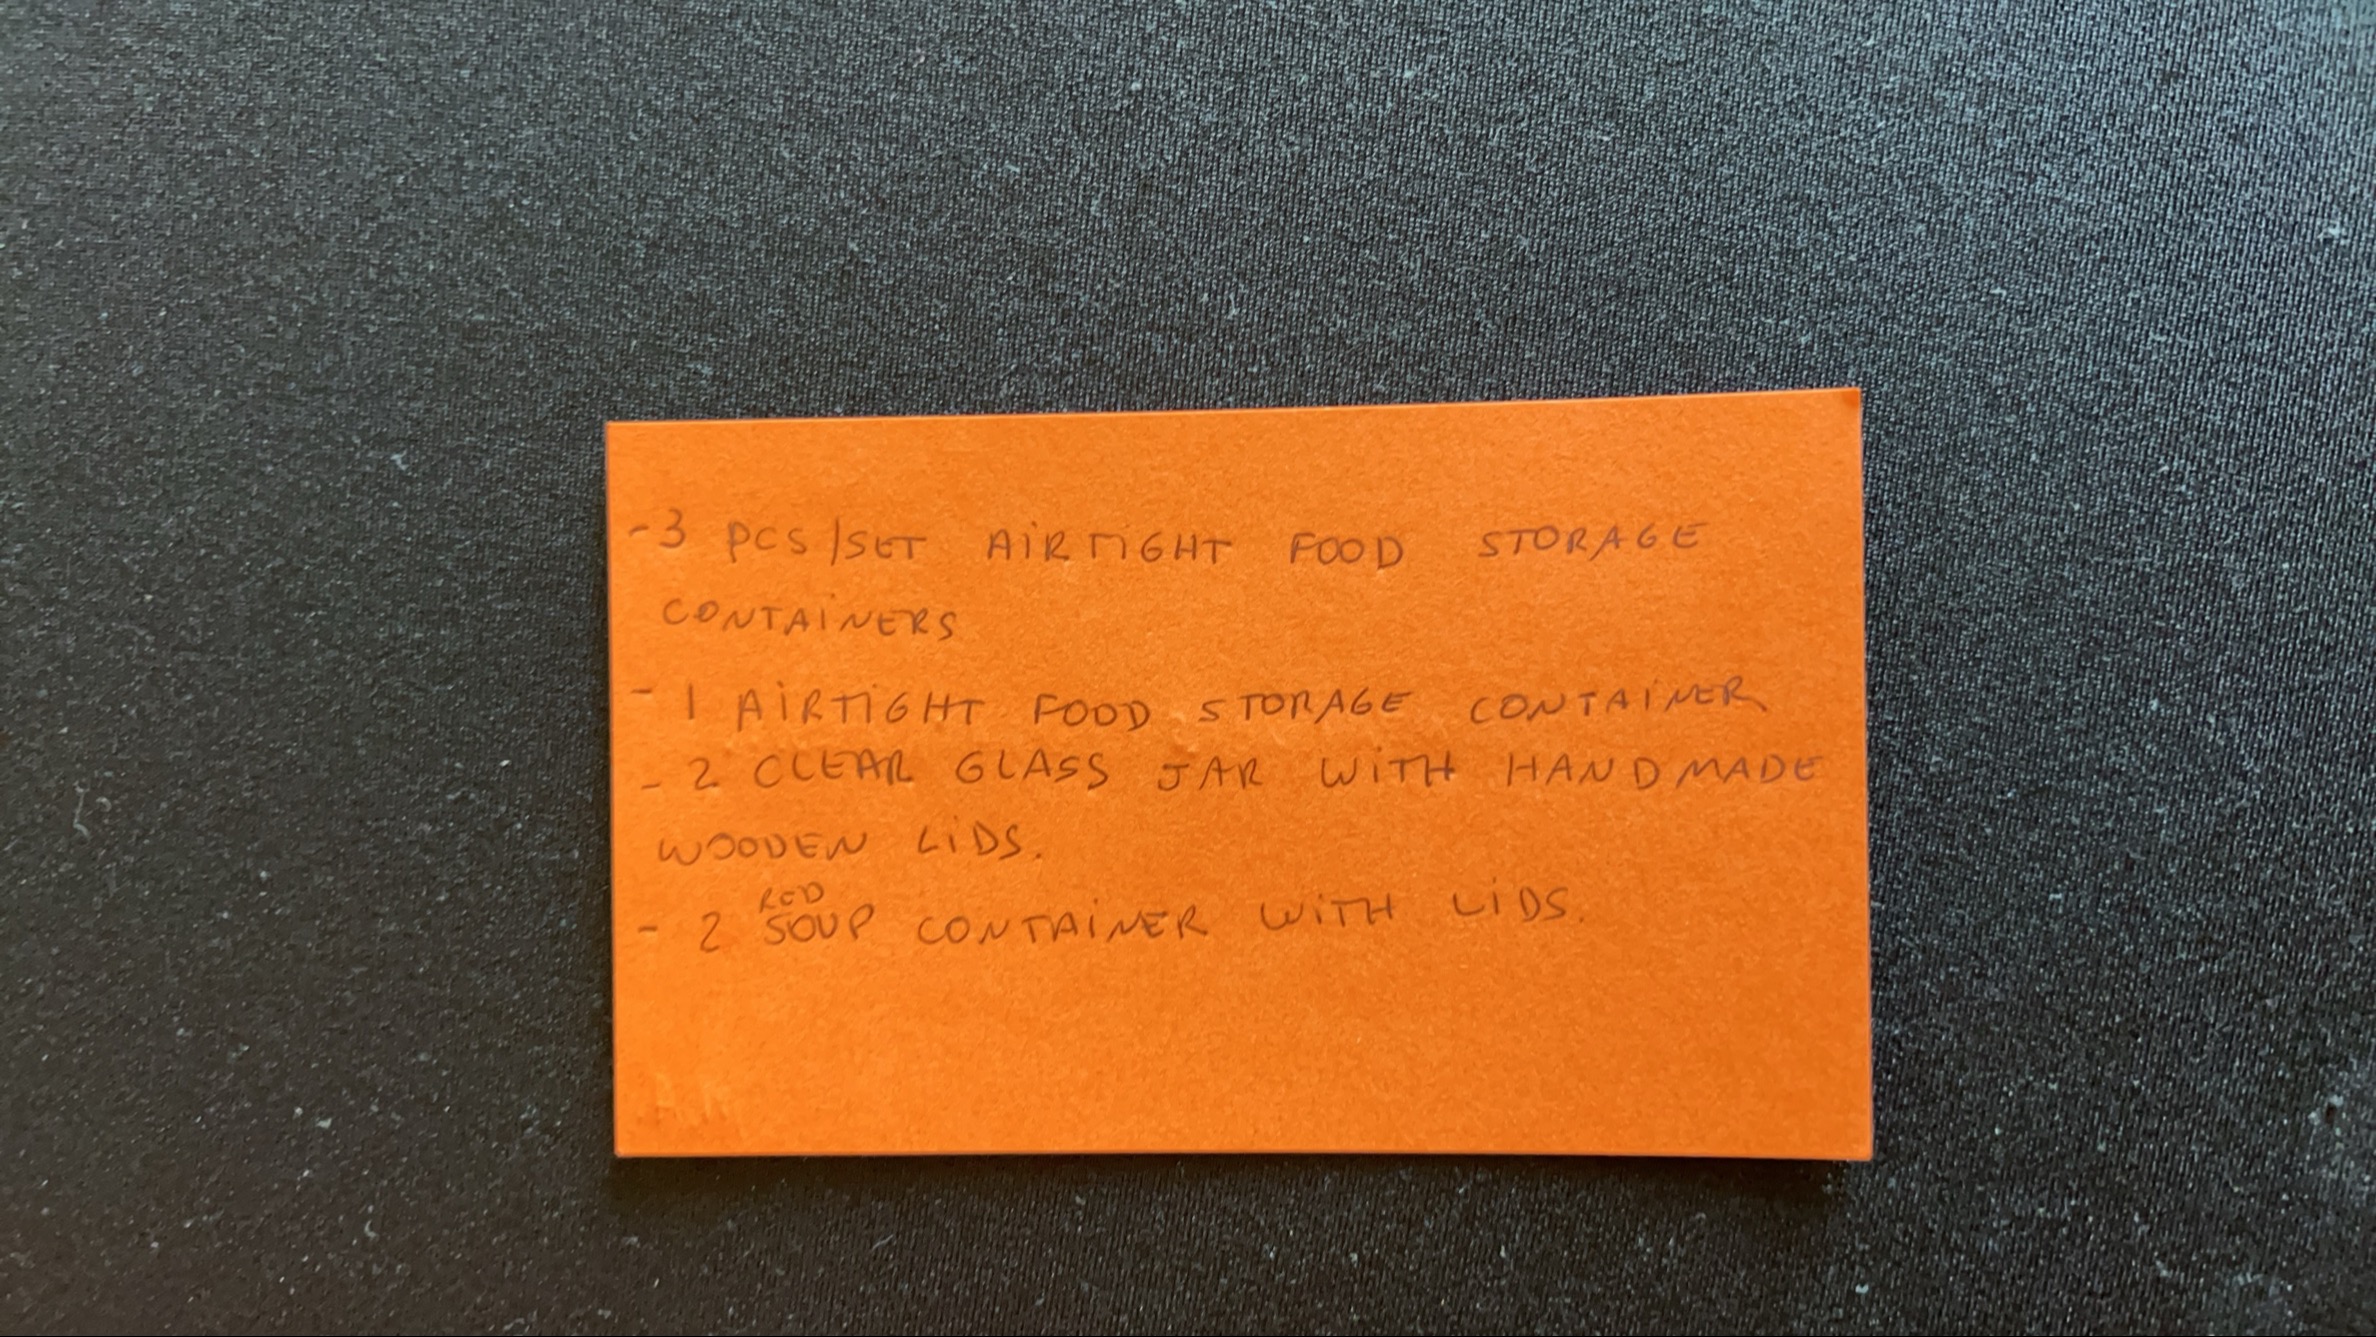 -3 PCS/SET AiRTiGHT FOOD STORAGE
CONTAiNERS
- 1 AiRTiGHT FOOD STORAGE CONTAiNER
- 2 CLEAR GLASS JAR WiTH HANDMADE
WOODEN LiDS.
RED
- 2 SOUP CONTAiNER WiTH LiDS.